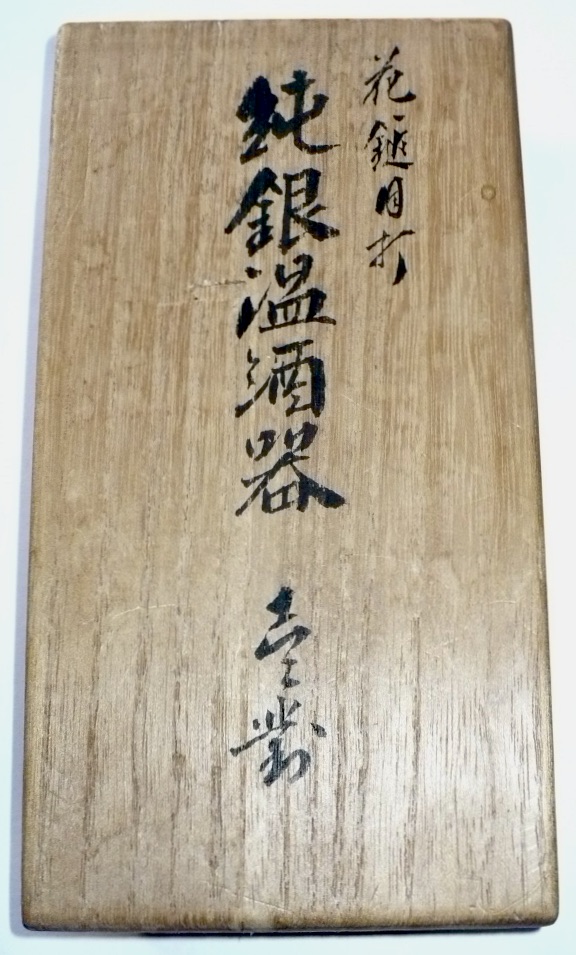 花鎚目打
純銀温酒器 壱對